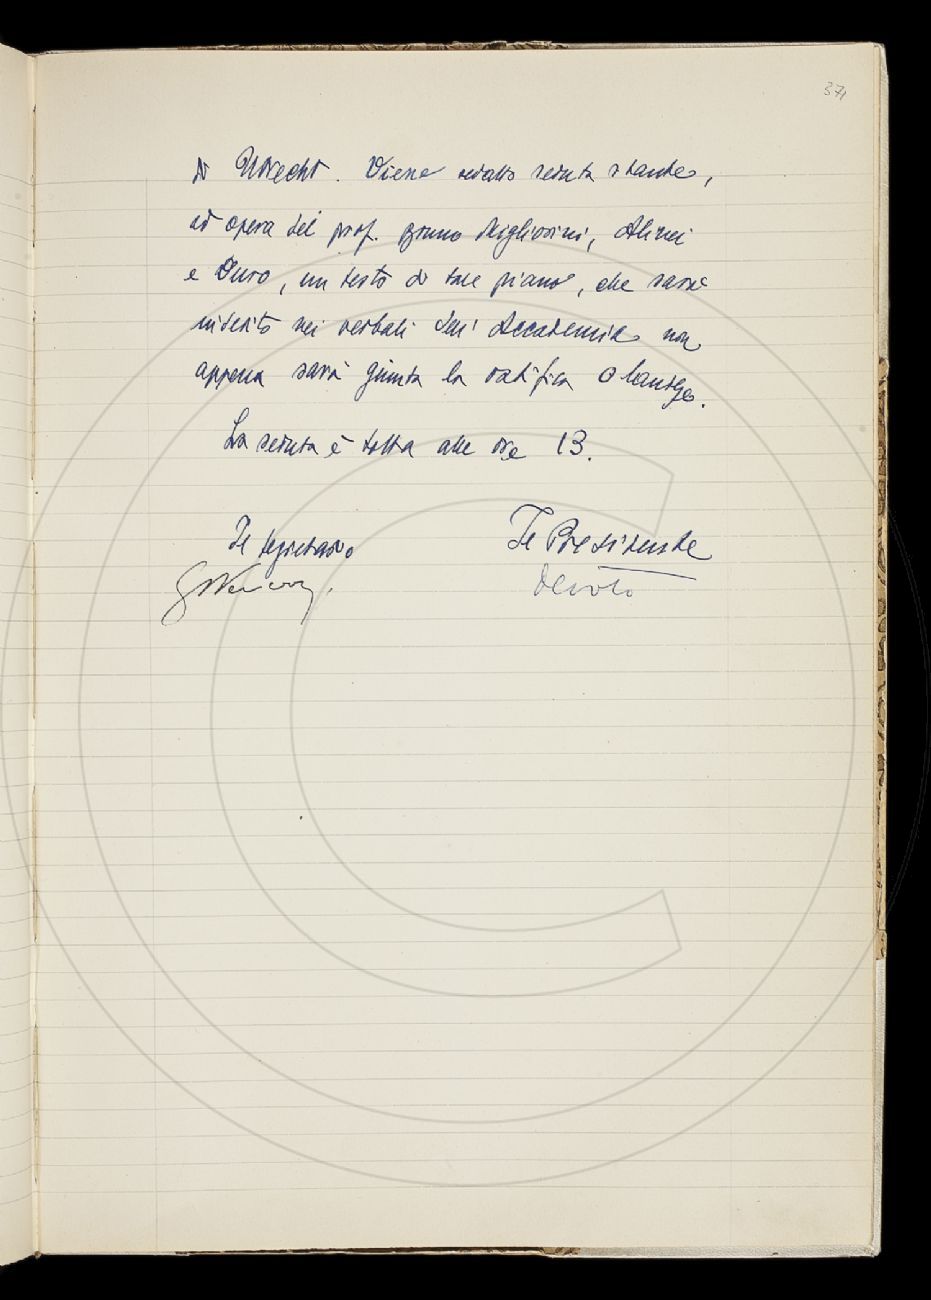 371
di Utrecht. Viene redatto seduta stante,
ad opera dei prof. Bruno Migliorini, Alinei
e Duro, un testo di tale piano, che sarà
inserito nei verbali dell'Accademia non
appena sarà giunta la ratifica olandese.
La seduta è tolta alle ore 13.
Il Segretario Il Presidente
Devoto